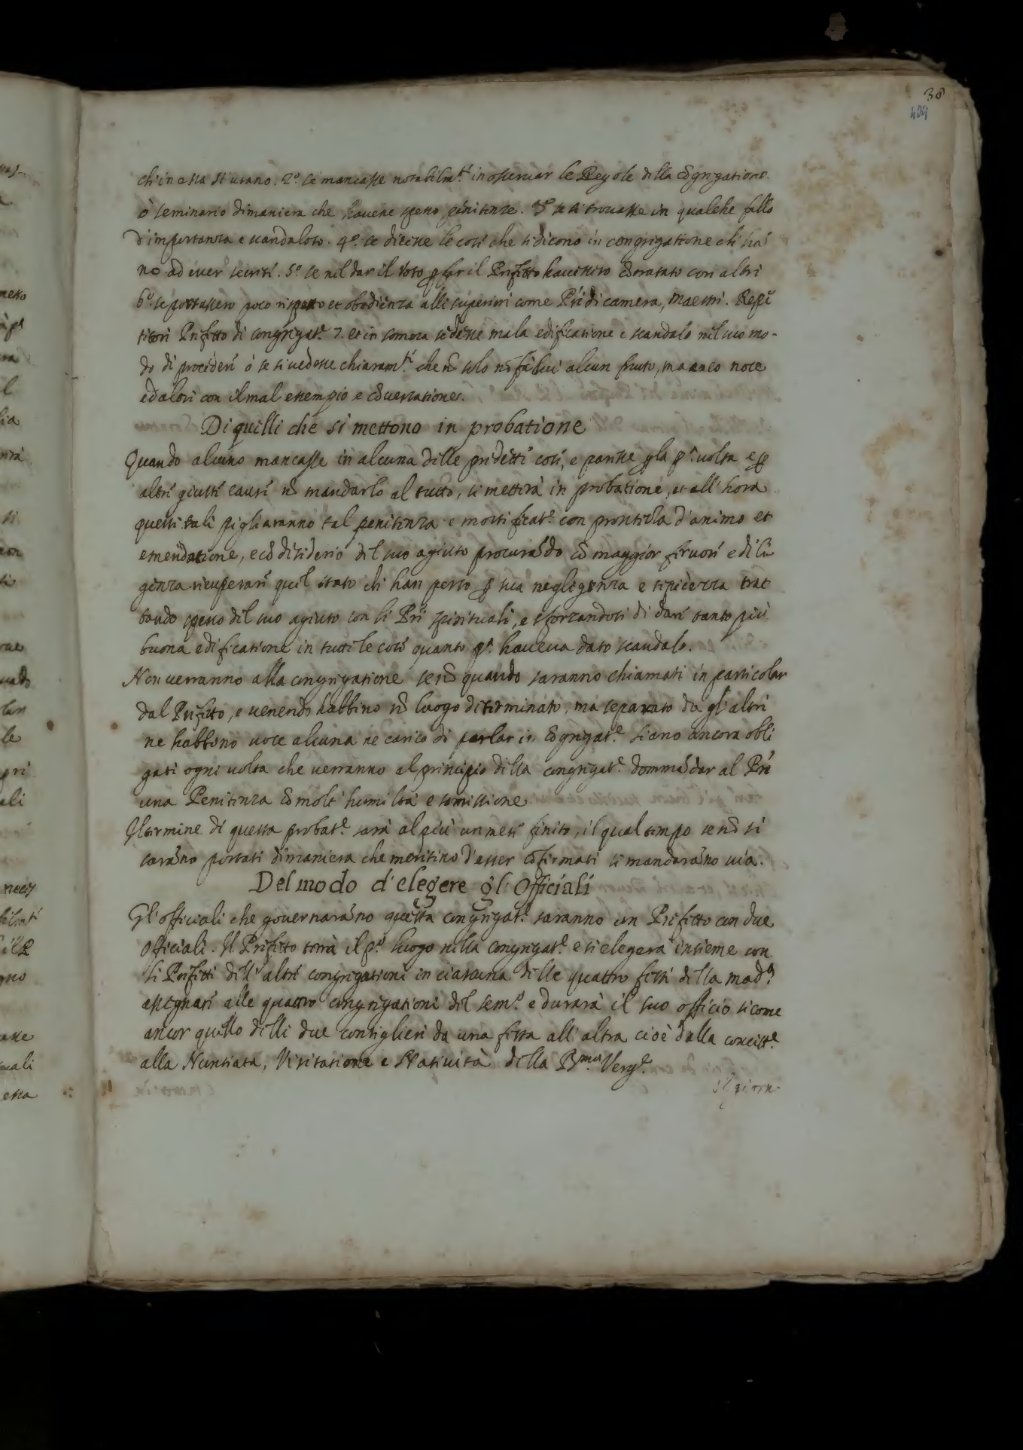 38
499
ch'in essa si usano. 2.º se mancasse notabilm.te in osservar le Regole della Cõgregatione
ò seminario dimaniera che havesse spesso penitenze. 3.º se si trovasse in qualche fallo
d'importanza e scandaloso. 4.º se dicesse le cose che si dicono in congregatione ch' hañ
no ad esser secreti. 5.º se nel dar il voto p far il Prefetto havesse cõtratato con altri
6.º se portassero poco rispetto et obedienza alli superiori come P'ri di camera, maestri. Repe
titori Prefetto di congregat.e 7. et in somma se desse mala edificatione e scandalo nel suo mo-
do di proceder ò se si vedesse chiaram.te che nõ solo nõ facesse alcun frutto, ma anco noce
ad altri con il mal essempio e cõversatione.
Di quelli che si mettono in probatione
Quando alcuno mancasse in alcuna delle predette cose, e paresse p la p.a volta e p
altre giuste cause nõ mandarlo al tutto, si metterà in probatione, et all' hora
questi tali pigliaranno tal penitenza e mortificat.e con prontezza d'animo et
emendatione, e cõ desiderio del suo agiuto procurando cõ maggior fervore e dili
genza ricuperare quel stato ch' han perso p sua neglegenza e tepidezza trat
tando spesso del suo agiuto con li P'ri spirituali, e sforzandosi di dare tanto più
buona edificatione in tutte le cose quanto p.a haveva dato scandalo.
Non verranno alla congregatione se nõ quando saranno chiamati in particolar
dal Prefetto, e venendo habbino nõ luogo determinato, ma separato da gl' altri
ne habbino voce alcuna ne carico di parlar in Cõgregat.e siano ancora obli
gati ogni volta che verranno al principio della congregat.e dommãdar al P're
una Penitenza cõ molta humiltà e somissione
Il termine di questa probat.e sarà al più un mese finito, il qual tempo se nõ si
sarãno portati dimaniera che meritino d'esser cõfirmati si mandarãno via.
Del modo d'elegere gl' Officiali
Gl' officiali che governarãno questa congregat.e saranno un Prefetto con due
Officiali. Il Prefetto terrà il p.º luogo nella congregat.e e si elegerà insieme con
li Prefetti dell' altre congregationi in ciascuna delle quattro feste della mad.a
assegnate alle quattro congregationi del sem.º e durarà il suo officio sicome
ancor quello delli due consiglieri da una festa all' altra cioè dalla concett.e
alla Nuntiata, Visitatione e Natività della B.ma Verg.e
Il giorn-